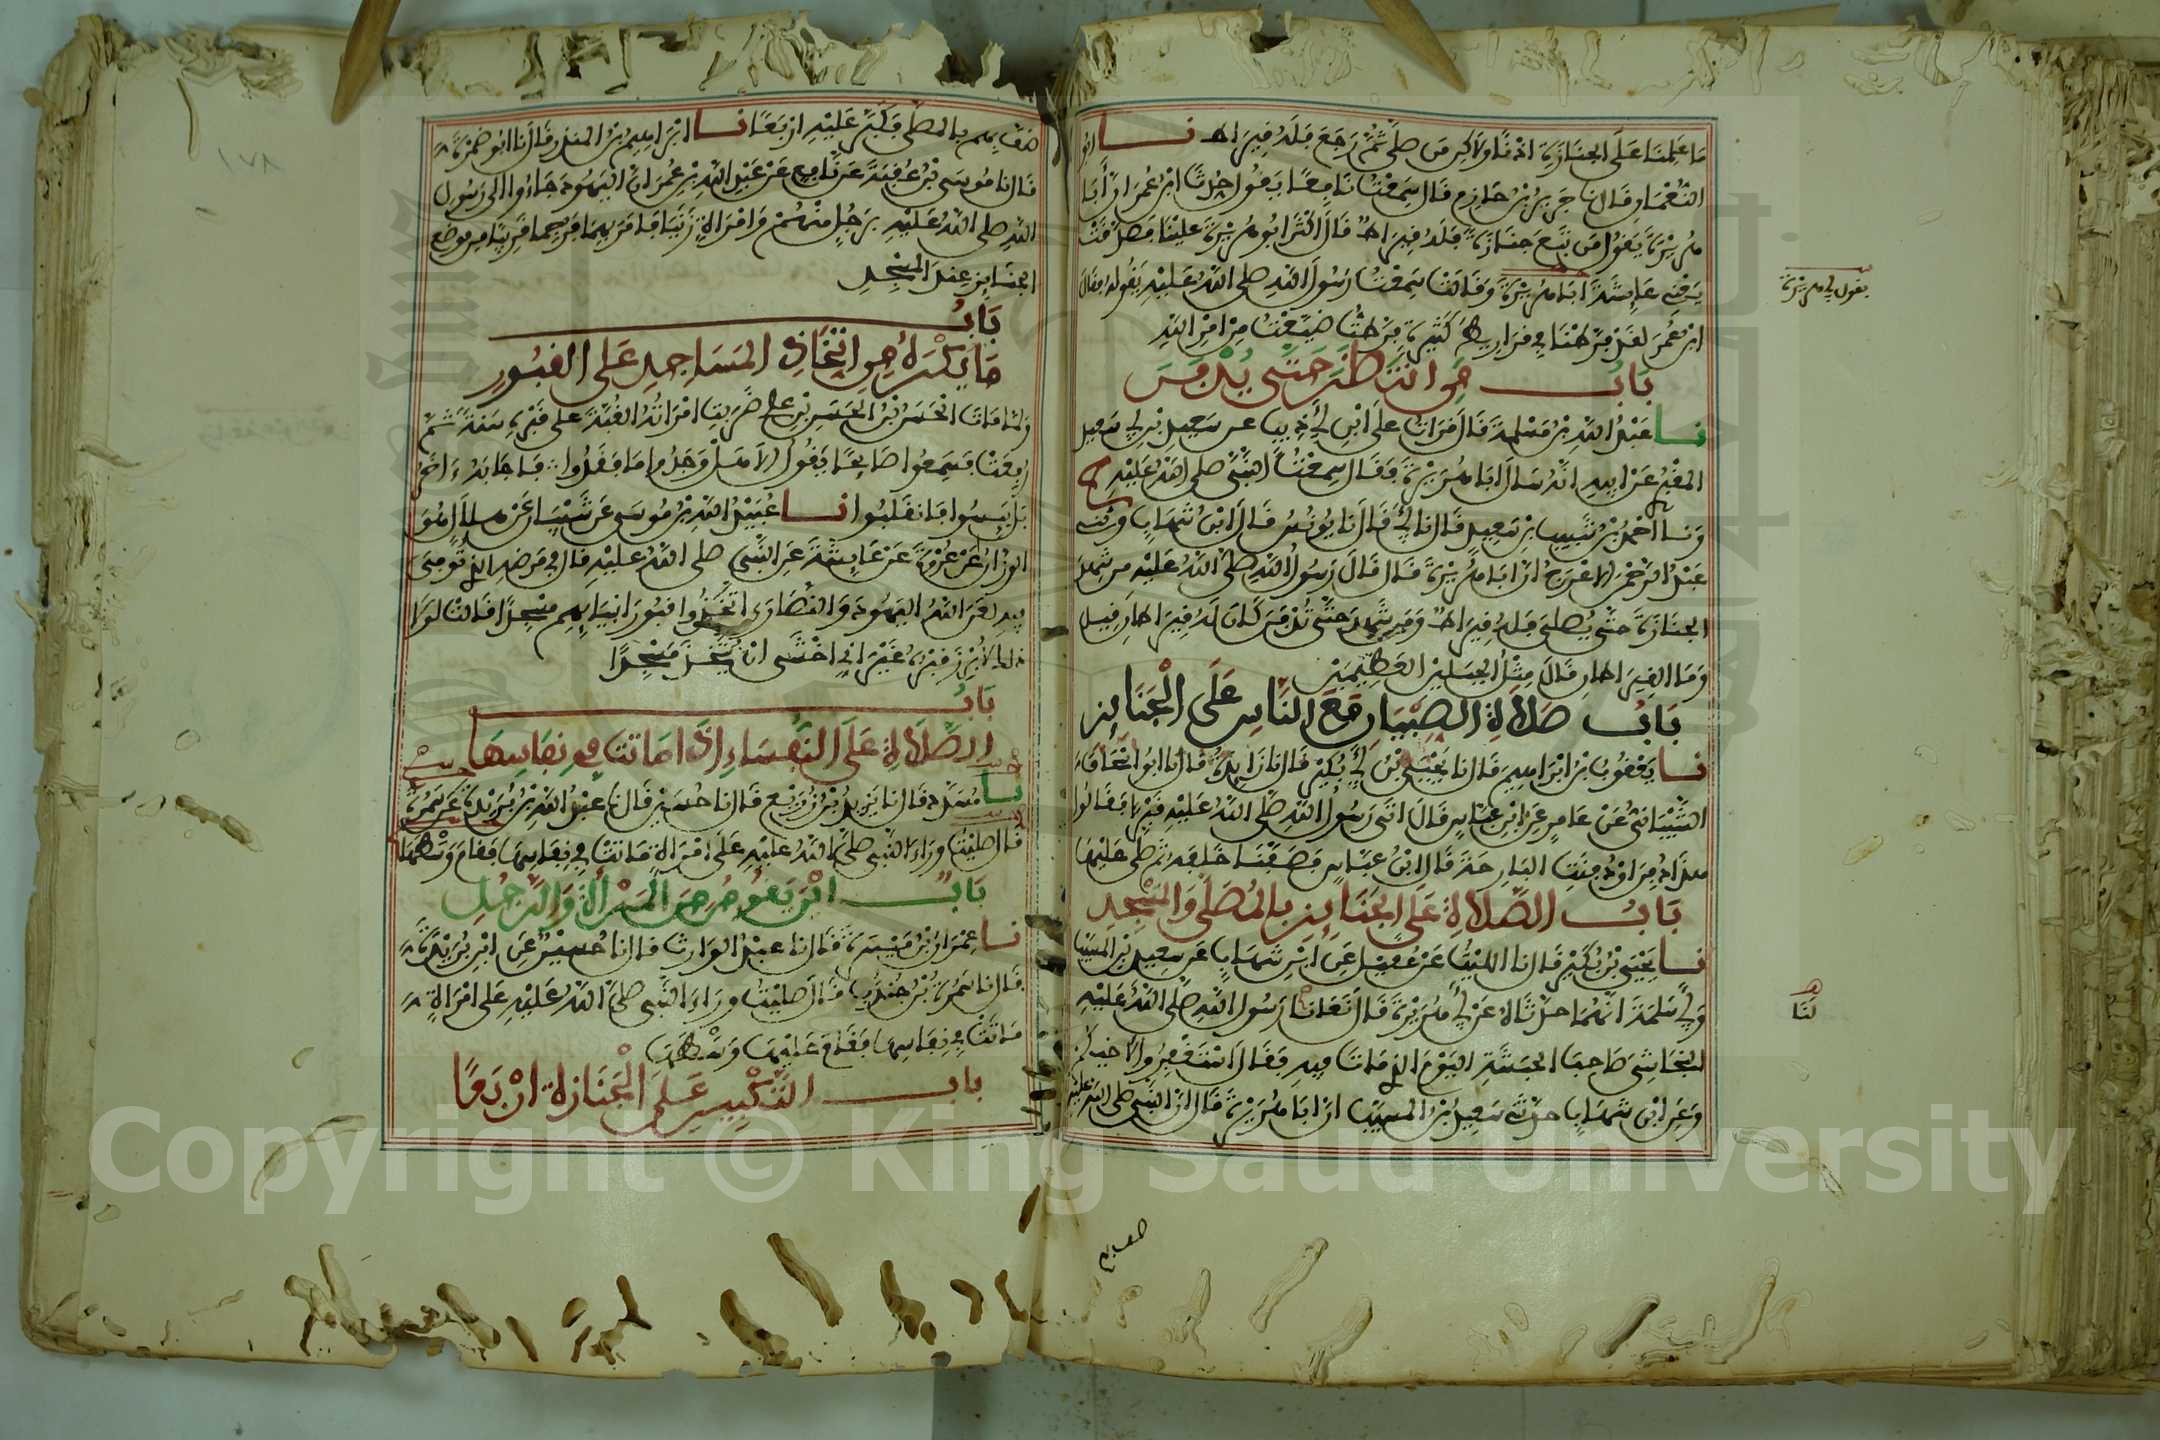 ما علمنا على الجنازة اذنا ولاكن من صلى ثم رجع فله قيراط نا ابو
النعمان قال نا جرير بن حازم قال سمعت نافعا يقول حدث ابن عمر ان ابا
هريرة يقول من تبع جنازة فله قيراط فقال اكثر ابو هريرة علينا فصدقت
يعني عايشة ابا هريرة وقالت سمعت رسول الله صلى الله عليه يقوله فقال
ابن عمر لقد فرطنا في قراريط كثيرة فرطت ضيعت من امر الله
باب من انتظر حتى يدفن
نا عبد الله بن مسلمة قال قرات على ابن ابي ذيب عن سعيد بن ابي سعيد
المقبري عن ابيه انه سال ابا هريرة فقال سمعت النبي صلى الله عليه ح
ونا احمد بن شبيب بن سعيد قال نا ابي قال نا يونس قال ابن شهاب وحدثني
عبد الرحمن الاعرج ان ابا هريرة قال قال رسول الله صلى الله عليه من شهد
الجنازة حتى يصلي فله قيراط ومن شهد حتى تدفن كان له قيراطان قيل
وما القيراطان قال مثل الجبلين العظيمين
باب صلاة الصبيان مع الناس على الجنايز
نا يعقوب بن ابراهيم قال نا يحيى بن ابي بكير قال نا زايدة قال نا ابو اسحاق
الشيباني عن عامر عن ابن عباس قال اتى رسول الله صلى الله عليه قبرا فقالوا
هذا دفن او دفنت البارحة قال ابن عباس فصففنا خلفه ثم صلى عليها
باب الصلاة على الجنايز بالمصلى والمسجد
نا يحيى بن بكير قال نا الليث عن عقيل عن ابن شهاب عن سعيد بن المسيب
وابي سلمة انهما حدثاه عن ابي هريرة قال نعانا رسول الله صلى الله عليه
النجاشي صاحب الحبشة اليوم الذي مات فيه فقال استغفروا لاخيكم
وعن ابن شهاب حدثني سعيد بن المسيب ان ابا هريرة قال ان النبي صلى الله عليه
يقول ابي هريرة
لنا
صف بهم
صف بهم بالمصلى فكبر عليه اربعا نا ابراهيم بن المنذر قال نا ابو ضمرة
قال نا موسى بن عقبة عن نافع عن عبد الله بن عمر ان اليهود جاءوا الى رسول
الله صلى الله عليه برجل منهم وامراة زنيا فامر بهما فرجما قريبا من موضع
الجنايز عند المسجد
باب
ما يكره من اتخاذ المساجد على القبور
ولما مات الحسن بن الحسن بن علي ضربت امراته القبة على قبره سنة ثم
رفعت فسمعوا صايحا يقول الا هل وجدوا ما فقدوا فاجابه ءاخر
بل يئسوا فانقلبوا نا عبيد الله بن موسى عن شيبان عن هلال هو
الوزان عن عروة عن عايشة عن النبي صلى الله عليه قال في مرضه الذي توفي
فيه لعن الله اليهود والنصارى اتخذوا قبور انبيايهم مسجدا قالت لولا
ذلك لابرز قبره غير اني اخشى ان يتخذ مسجدا
باب
الصلاة على النفساء اذا ماتت في نفاسها
نا مسدد قال نا يزيد بن زريع قال نا حسين قال نا عبد الله بن بريدة عن سمرة
قال صليت وراء النبي صلى الله عليه على امراة ماتت في نفاسها فقام وسطها
باب اين يقوم من المراة والرجل
نا عمران بن ميسرة قال نا عبد الوارث قال نا حسين عن ابن بريدة
قال نا سمرة بن جندب قال صليت وراء النبي صلى الله عليه على امراة
ماتت في نفاسها فقام عليها وسطها
باب التكبير على الجنازة اربعا
١٧٨
Copyright © King Saud University